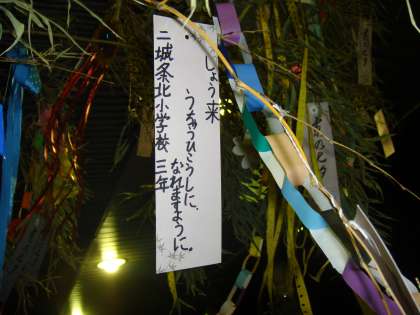 ・しょう来
うちゅうひこうしに、
なれますように。
二城条北小学校 三年